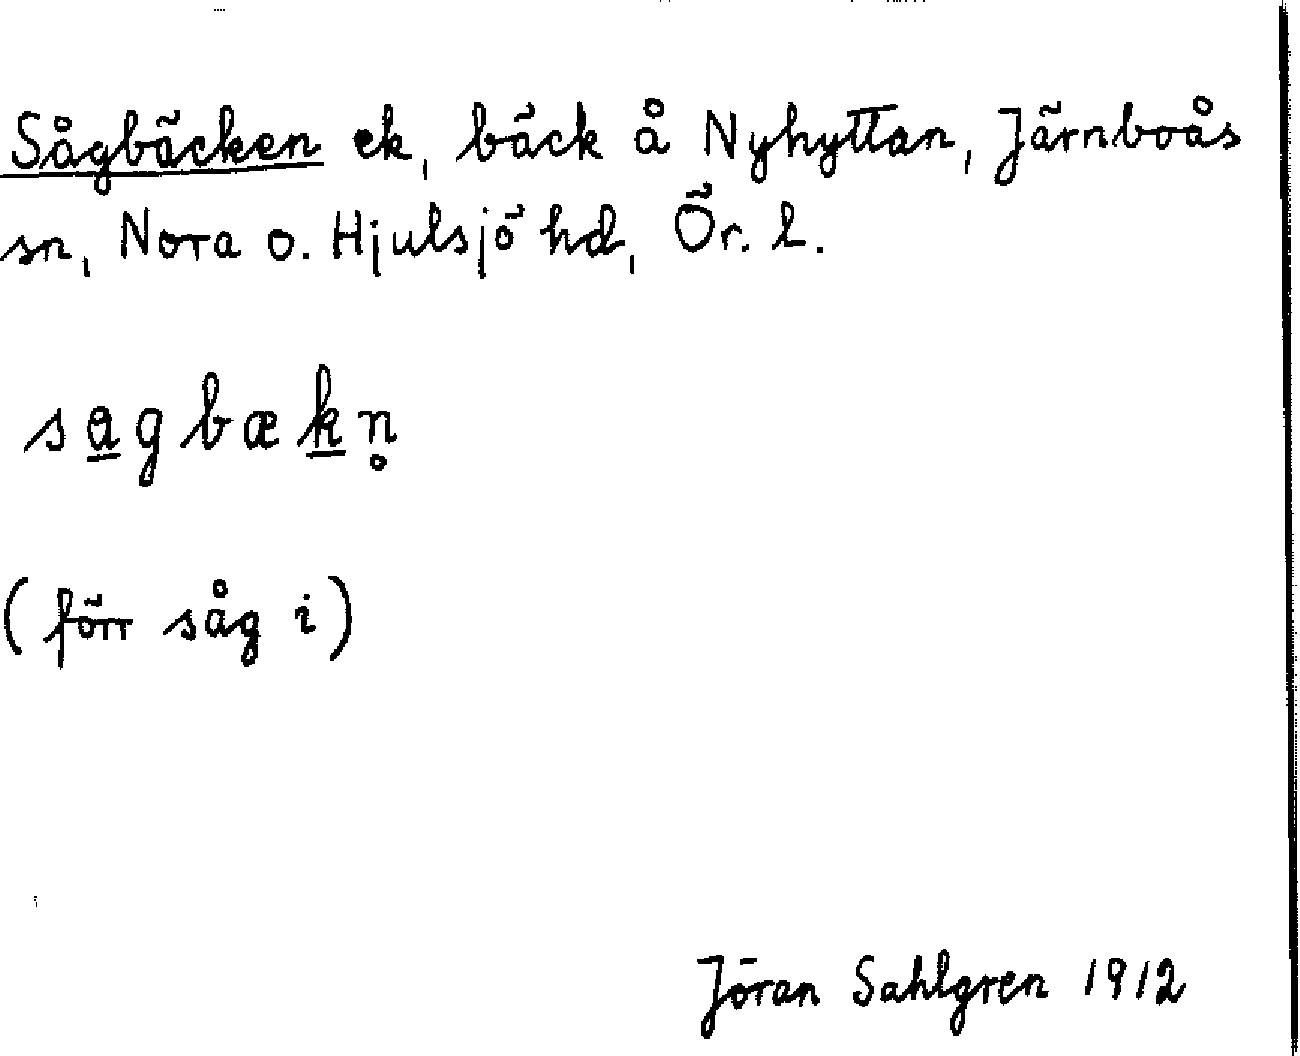 Sågbäcken ek, bäck å Nyhyttan, Järnboås
sn, Nora o. Hjulsjö hd, Ör. l.
sa̲gbæk̲n̥
(förr såg i)
Jöran Sahlgren 1912